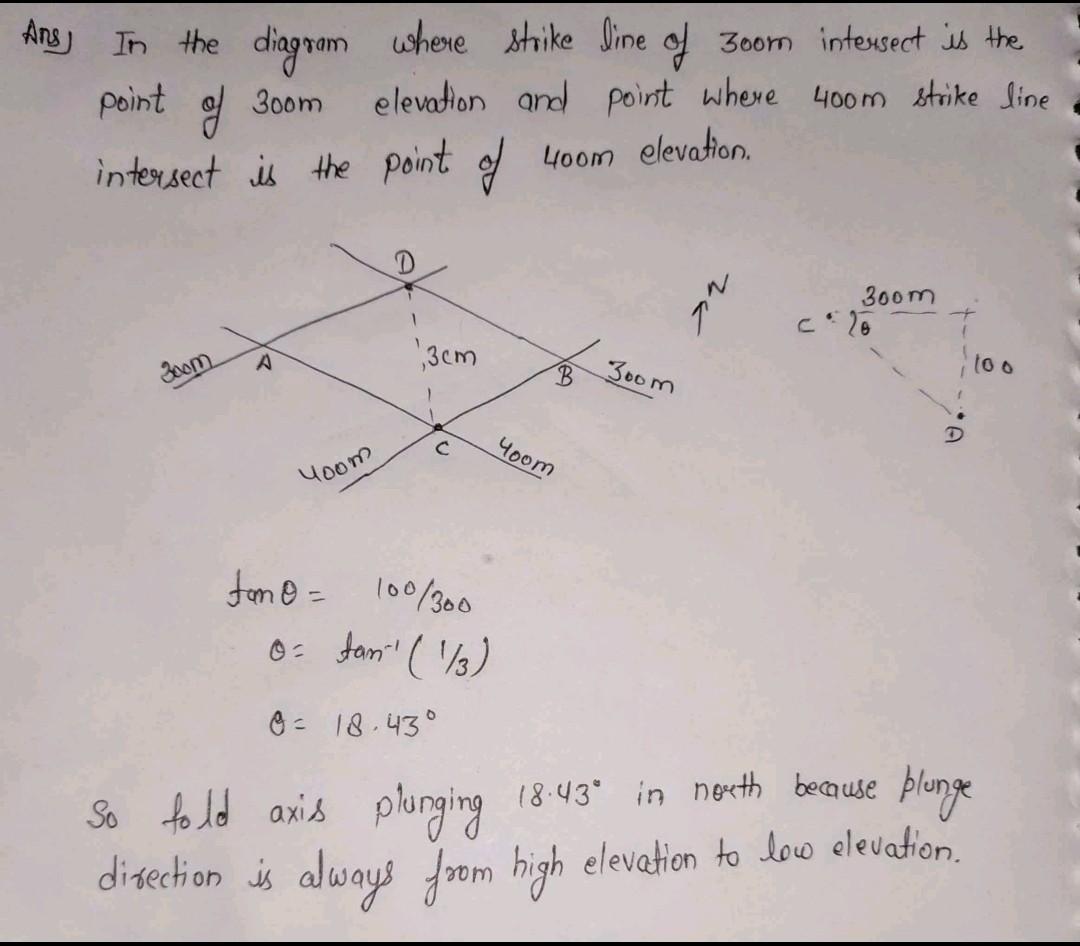 Ans) In the diagram where strike line of 300m intersect is the
point of 300m elevation and point where 400m strike line
intersect is the point of 400m elevation.
D
N
300m
C θ
100
3cm
300m
A
B
300m
D
C
400m
400m
tanθ = 100/300
θ = tan⁻¹ (1/3)
θ = 18.43°
So fold axis plunging 18.43° in north because plunge
direction is always from high elevation to low elevation.